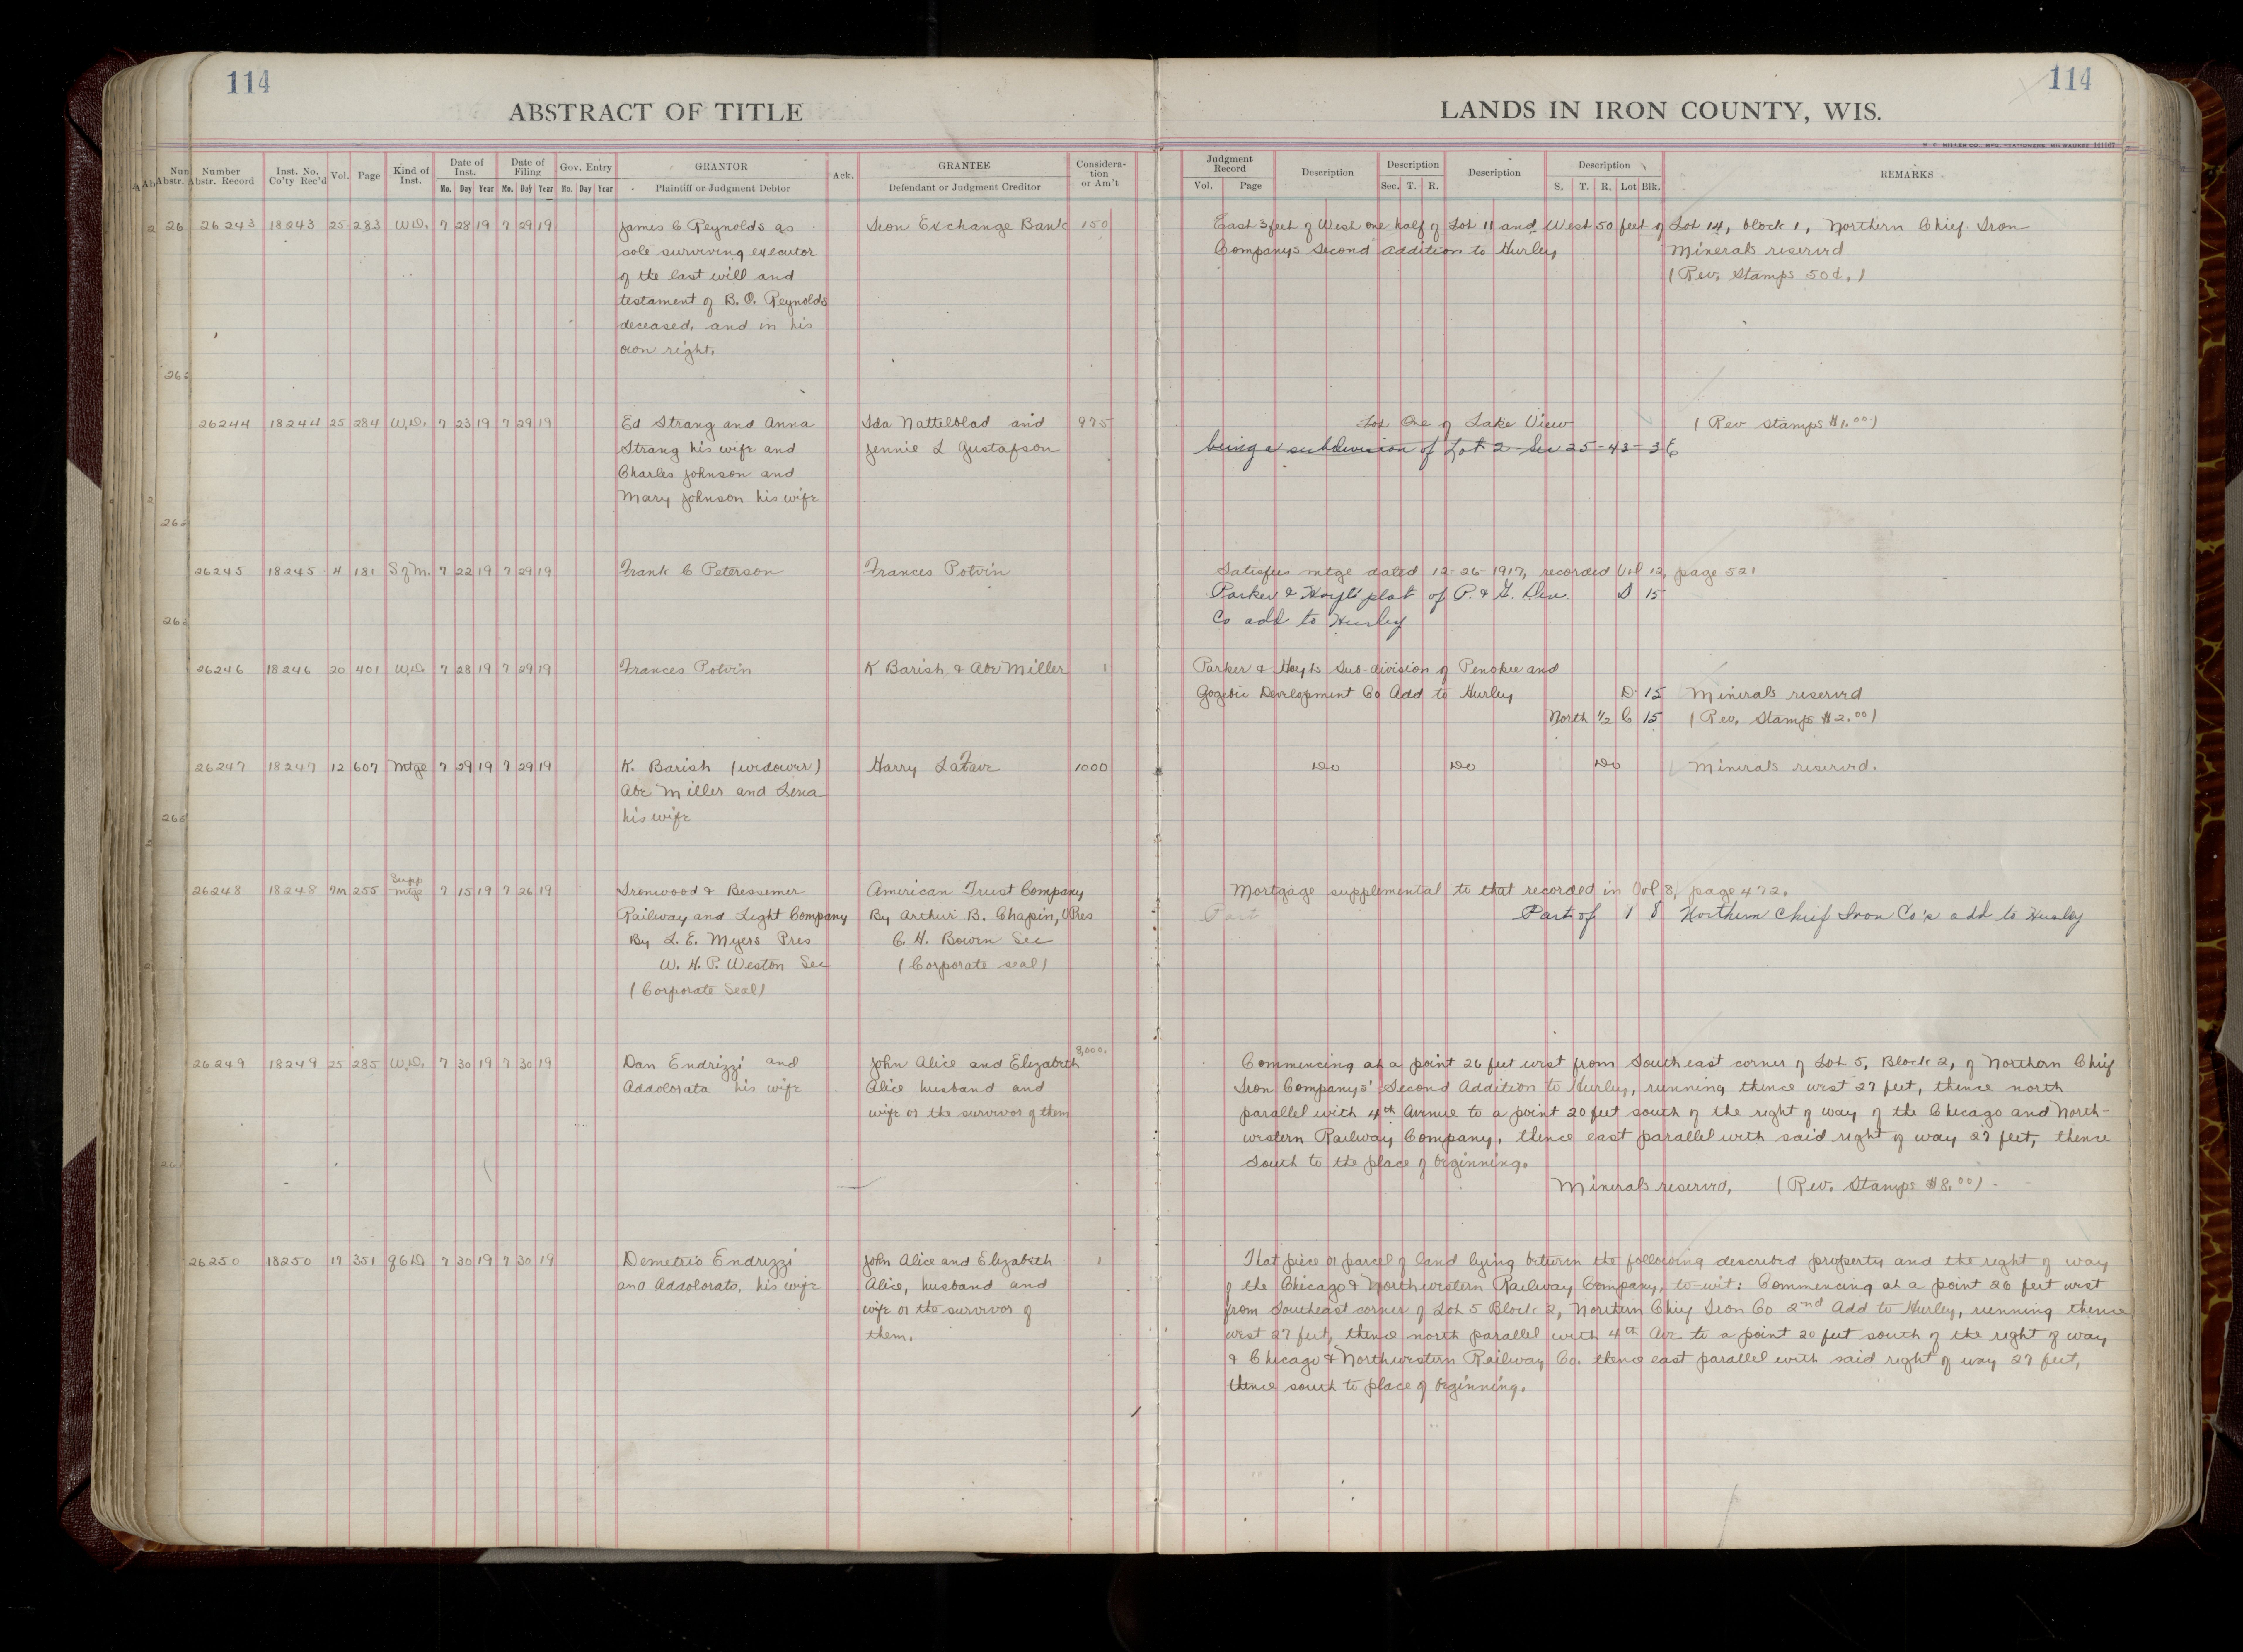 114
114
ABSTRACT OF TITLE
LANDS IN IRON COUNTY, WIS.
Number Abstr. Record
Inst. No. Co'ty Rec'd
Vol.
Page
Kind of Inst.
Date of Inst.
Mo. Day Year
Date of Filing
Mo. Day Year
Gov. Entry
Mo. Day Year
GRANTOR
Plaintiff or Judgment Debtor
Ack.
GRANTEE
Defendant or Judgment Creditor
Considera-
tion
or Am't
Judgment Record
Vol. Page
Description
Description
Sec. T. R.
Description
Description
S. T. R. Lot Blk.
REMARKS
26243 18243 25 283 W.D. 7 28 19 7 29 19 James C Reynolds as Iron Exchange Bank 150 East 3 feet of West one half of Lot 11 and West 50 feet of Lot 14, block 1, Northern Chief Iron
sole surviving executor Companys Second addition to Hurley Minerals reserved
of the last will and (Rev. Stamps 50¢.)
testament of B. O. Reynolds
deceased, and in his
own right.
26244 18244 25 284 W.D. 7 23 19 7 29 19 Ed Strang and Anna Ida Nattelblad and 975 Lot One of Lake View (Rev Stamps $1.00)
Strang his wife and Jennie L Gustafson being a subdivision of Lot 2 Sec 25-43-3E
Charles Johnson and
Mary Johnson his wife
26245 18245 4 181 S of M. 7 22 19 7 29 19 Frank C Peterson Frances Potvin Satisfies mtge dated 12-26-1917, recorded Vol 12, page 521
Parker & Hoyt's plat of P. & G. Dev. D 15
Co add to Hurley
26246 18246 20 401 W.D. 7 28 19 7 29 19 Frances Potvin K Barish & Abe Miller 1 Parker & Hoyts Sub-division of Penokee and
Gogebic Development Co Add to Hurley D 15 Minerals reserved
North 1/2 C 15 (Rev. Stamps $2.00)
26247 18247 12 607 Mtge 7 29 19 7 29 19 K. Barish (widower) Harry LaFave 1000 Do Do Do Minerals reserved.
Abe Miller and Lena
his wife
26248 18248 7M 255 Supp Mtge 7 15 19 7 26 19 Ironwood & Bessemer American Trust Company Mortgage supplemental to that recorded in Vol 8, page 472.
Railway and Light Company By Arthur B. Chapin, V Pres Part Part of 1 8 Northern Chief Iron Co's add to Hurley
By L. E. Myers Pres C. H. Bowen Sec
W. H. P. Weston Sec (Corporate seal)
(Corporate Seal)
26249 18249 25 285 W.D. 7 30 19 7 30 19 Dan Endrizzi and John Alice and Elizabeth 8,000. Commencing at a point 26 feet west from Southeast corner of Lot 5, Block 2, of Northern Chief
Addolorata his wife Alice husband and Iron Companys' Second Addition to Hurley, running thence west 27 feet, thence north
wife or the survivor of them parallel with 4th Avenue to a point 20 feet south of the right of way of the Chicago and North-
western Railway Company, thence east parallel with said right of way 27 feet, thence
South to the place of beginning.
Minerals reserved, (Rev. Stamps $8.00)
26250 18250 17 351 QCD 7 30 19 7 30 19 Demetrio Endrizzi John Alice and Elizabeth 1 That piece or parcel of land lying between the following described property and the right of way
and Addolorato, his wife Alice, husband and of the Chicago & Northwestern Railway Company, to-wit: Commencing at a point 26 feet west
wife or the survivor of from Southeast corner of Lot 5 Block 2, Northern Chief Iron Co 2nd Add to Hurley, running thence
them. west 27 feet, thence north parallel with 4th Ave to a point 20 feet south of the right of way
& Chicago & Northwestern Railway Co. thence east parallel with said right of way 27 feet,
thence south to place of beginning.